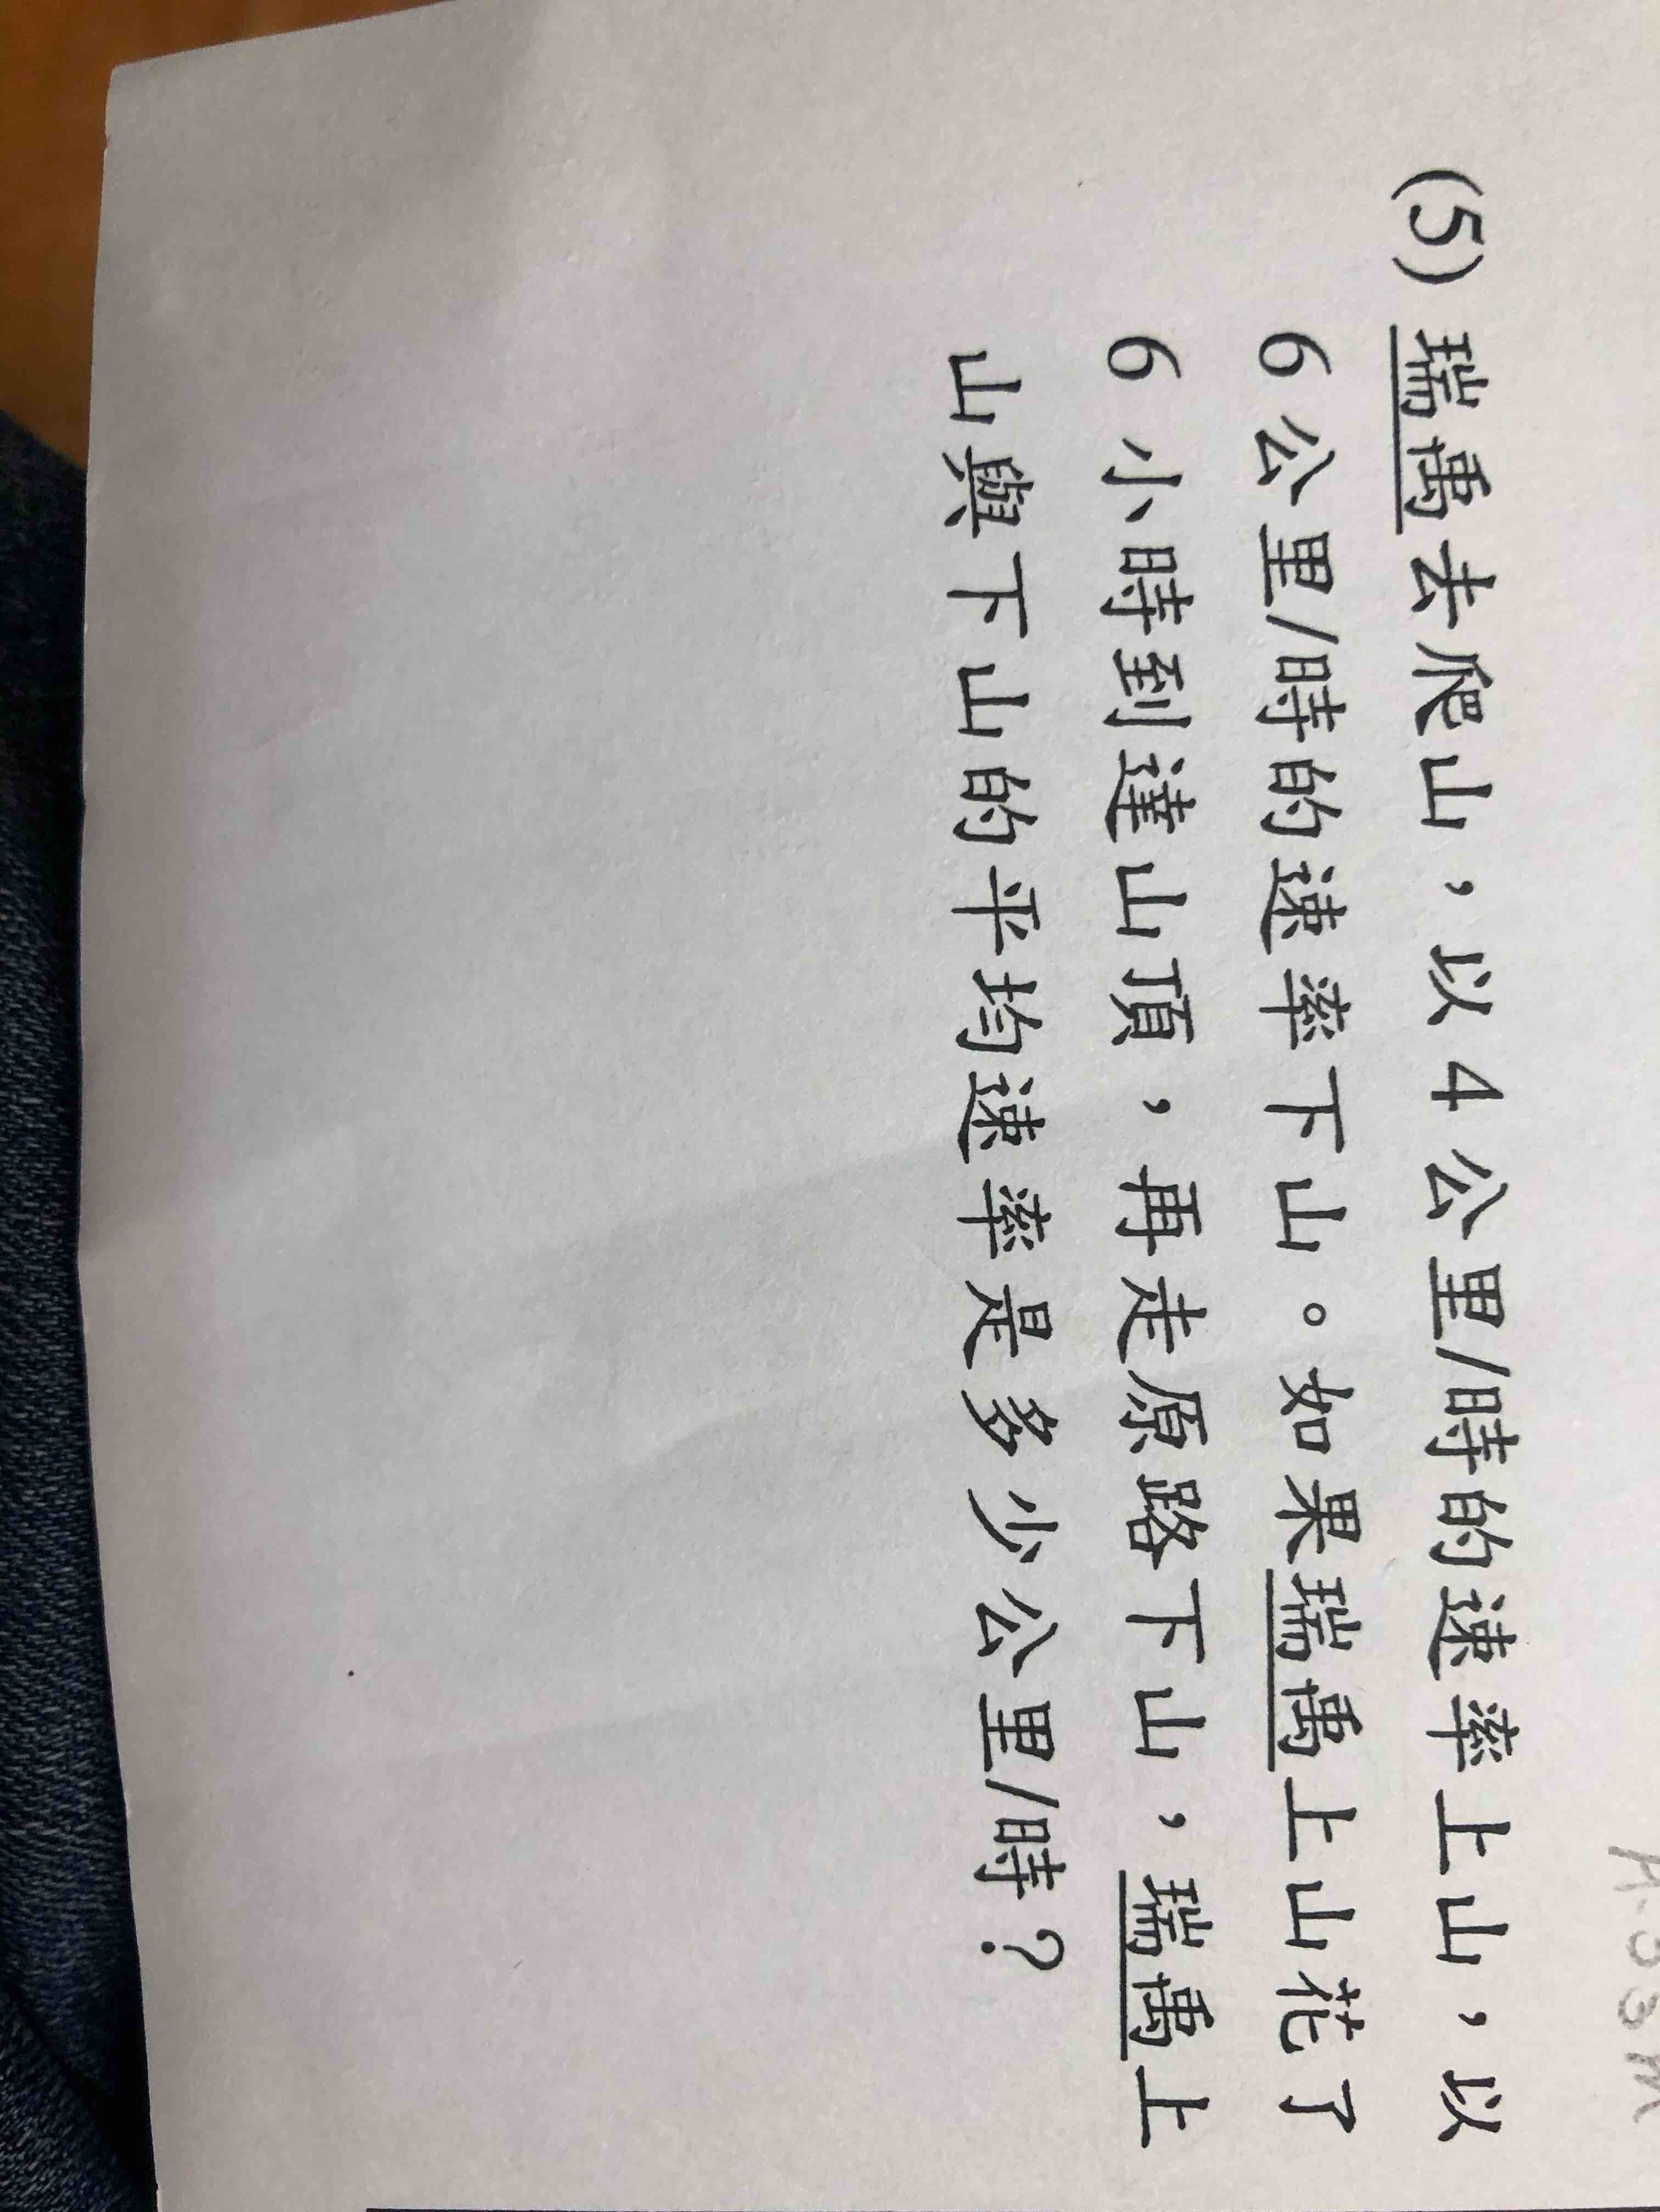 (5) 瑞禹去爬山，以 4 公里/時的速率上山，以
6 公里/時的速率下山。如果瑞禹上山花了
6 小時到達山頂，再走原路下山，瑞禹上
山與下山的平均速率是多少公里/時？